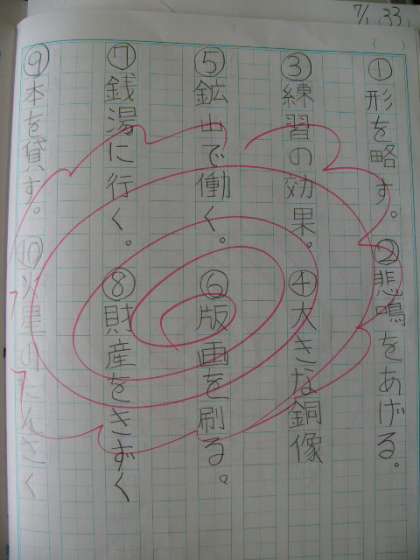 7/1 33
①形を略す。②悲鳴をあげる。
③練習の効果。④大きな銅像
⑤鉱山で働く。⑥版画を刷る。
⑦銭湯に行く。⑧財産をきずく
⑨本を貸す。⑩火星のたんさく